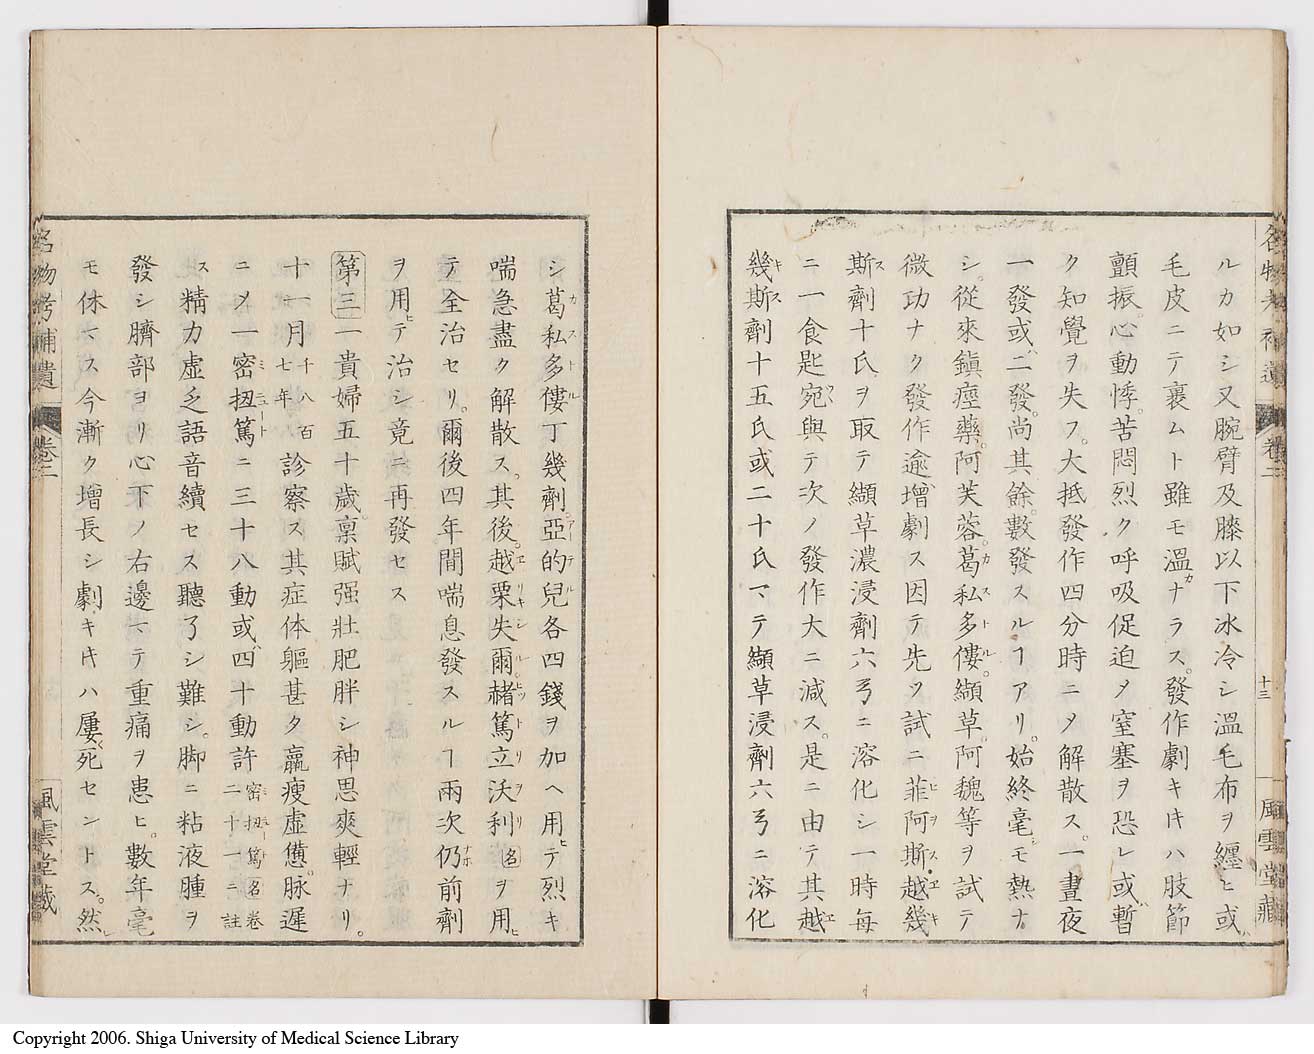 ルカ如シ又腕臂及膝以下冰冷シ溫毛布ヲ纏ヒ或ハ
毛皮ニテ裹ムト雖モ溫カナラス。發作劇キ𪜈ハ肢節
顫振。心動悸。苦悶烈ク呼吸促迫〆窒塞ヲ恐レ或ハ暫
ク知覺ヲ失フ。大抵發作四分時ニ〆解散ス。一晝夜
一發或ハ二發。尚其餘。數發スルヿアリ。始終毫モ熱ナ
シ。從來鎮痙藥。阿芙蓉。葛私多僂。纈草。阿魏等ヲ試テ
微功ナク發作逾增劇ス因テ先ツ試ニ菲阿斯・越幾
斯劑十氏ヲ取テ纈草濃浸劑六弓ニ溶化シ一時每
ニ一食匙宛與テ次ノ發作大ニ減ス。是ニ由テ其越
幾斯劑十五氏或二十氏マテ纈草浸劑六弓ニ溶化
名物考補遺 卷二 十三 風雲堂藏
シ葛私多僂丁幾劑。亞的兒各四錢ヲ加ヘ用ヒテ烈キ
喘急盡ク解散ス。其後。越栗失爾。赭篤立沃利名ヲ用ヒ
テ全治セリ。爾後四年間喘息發スルヿ兩次仍前劑
ヲ用ヒテ治シ竟ニ再發セス
第三一貴婦五十歲。稟賦强壯肥胖シ神思爽輕ナリ。
十一月千八百七年診察ス其症体軀甚タ羸瘦虛憊。脉遲
ニ〆一密扭篤ニ三十八動或ハ四十動許密扭篤名卷二十一ニ註
ス精力虛乏語音續セス聽了シ難シ。脚ニ粘液腫ヲ
發シ臍部ヨリ心下ノ右邊マテ重痛ヲ患ヒ。數年毫
モ休マス今漸ク增長シ劇キ𪜈ハ屢死セントス。然レ
名物考補遺 卷二 風雲堂藏
Copyright 2006. Shiga University of Medical Science Library